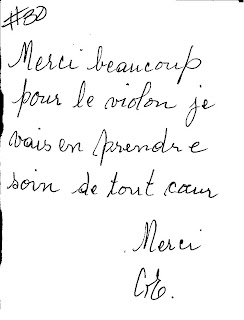 #30
Merci beaucoup
pour le violon je
vais en prendre
soin de tout cœur
Merci